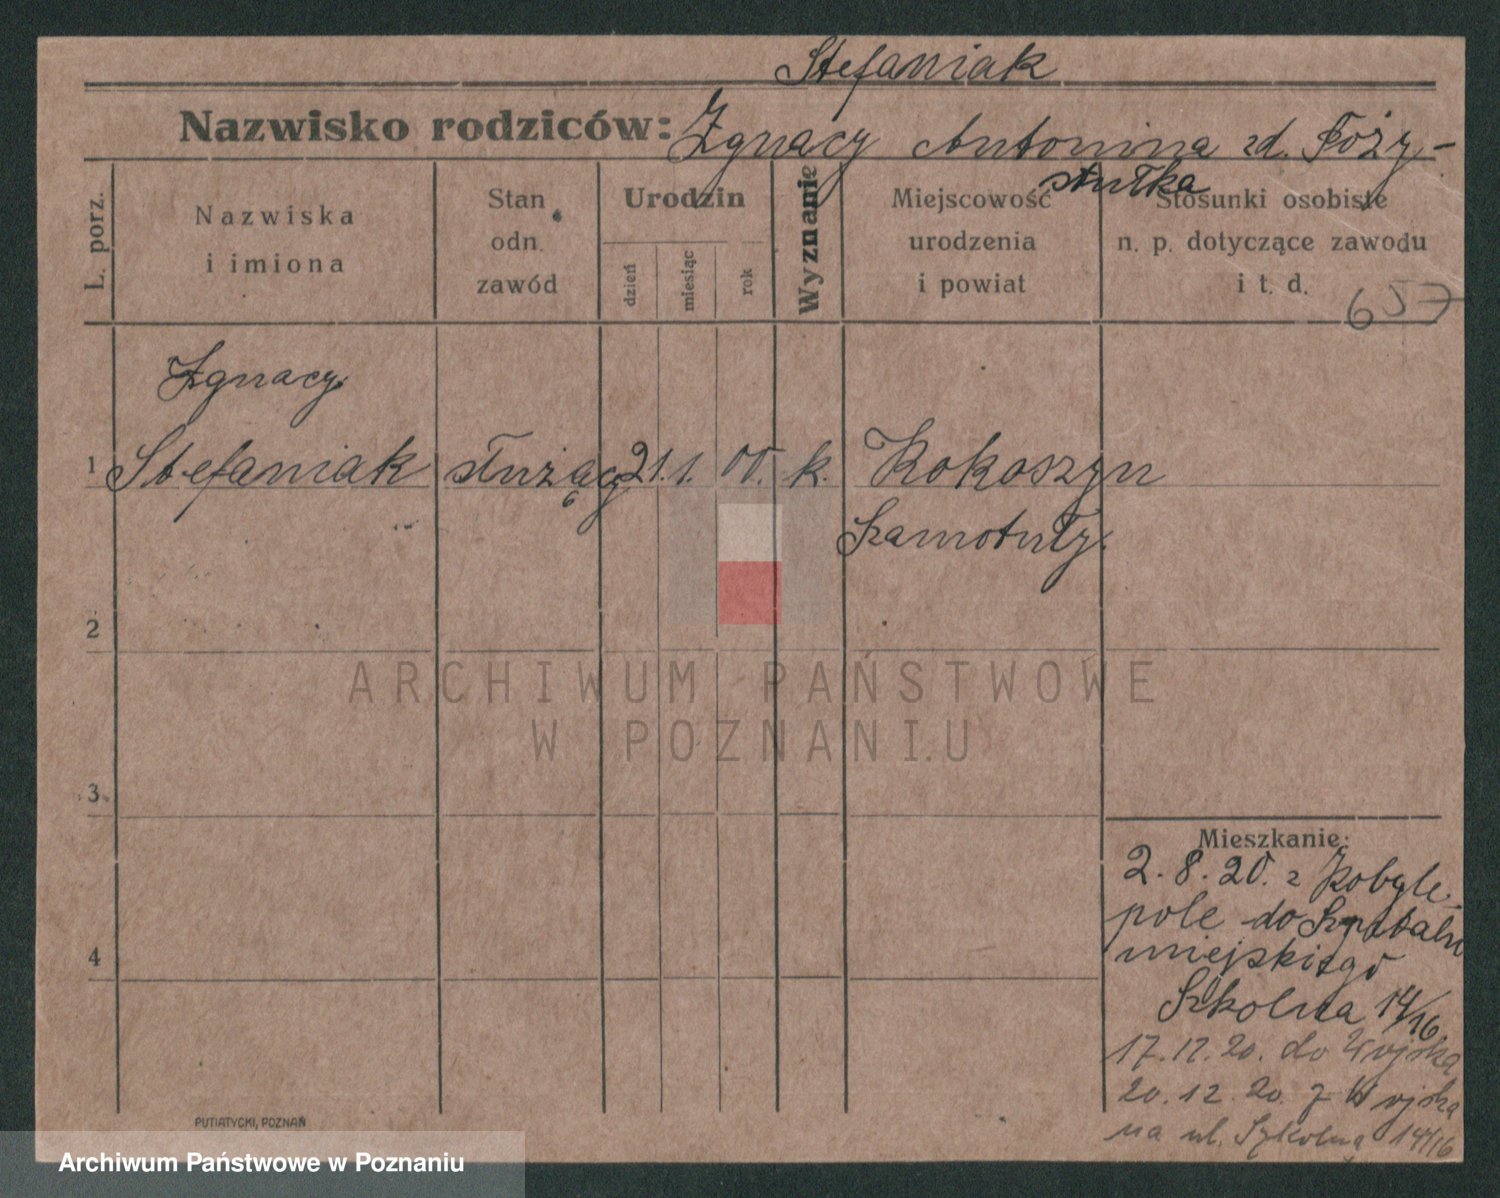 Stefaniak
Nazwisko rodziców: Ignacy Antonina zd. Foży-
stułka
L. porz.
Nazwiska
i imiona
Stan
odn.
zawód
Urodzin
dzień
miesiąc
rok
Wyznanie
Miejscowość
urodzenia
i powiat
Stosunki osobiste
n. p. dotyczące zawodu
i t. d.
657
Ignacy
1 Stefaniak służący 21. 1. 00. k. Kokoszyn
Szamotuły.
2
3
4
Mieszkanie:
2.8.20. z Kobyle-
pole do Szpitalu
miejskiego
Szkolna 14/16
17.12.20. do Wojska
20.12.20. z Wojska
na ul. Szkolną 14/16
PUTIATYCKI, POZNAŃ
ARCHIWUM PAŃSTWOWE
W POZNANIU
Archiwum Państwowe w Poznaniu